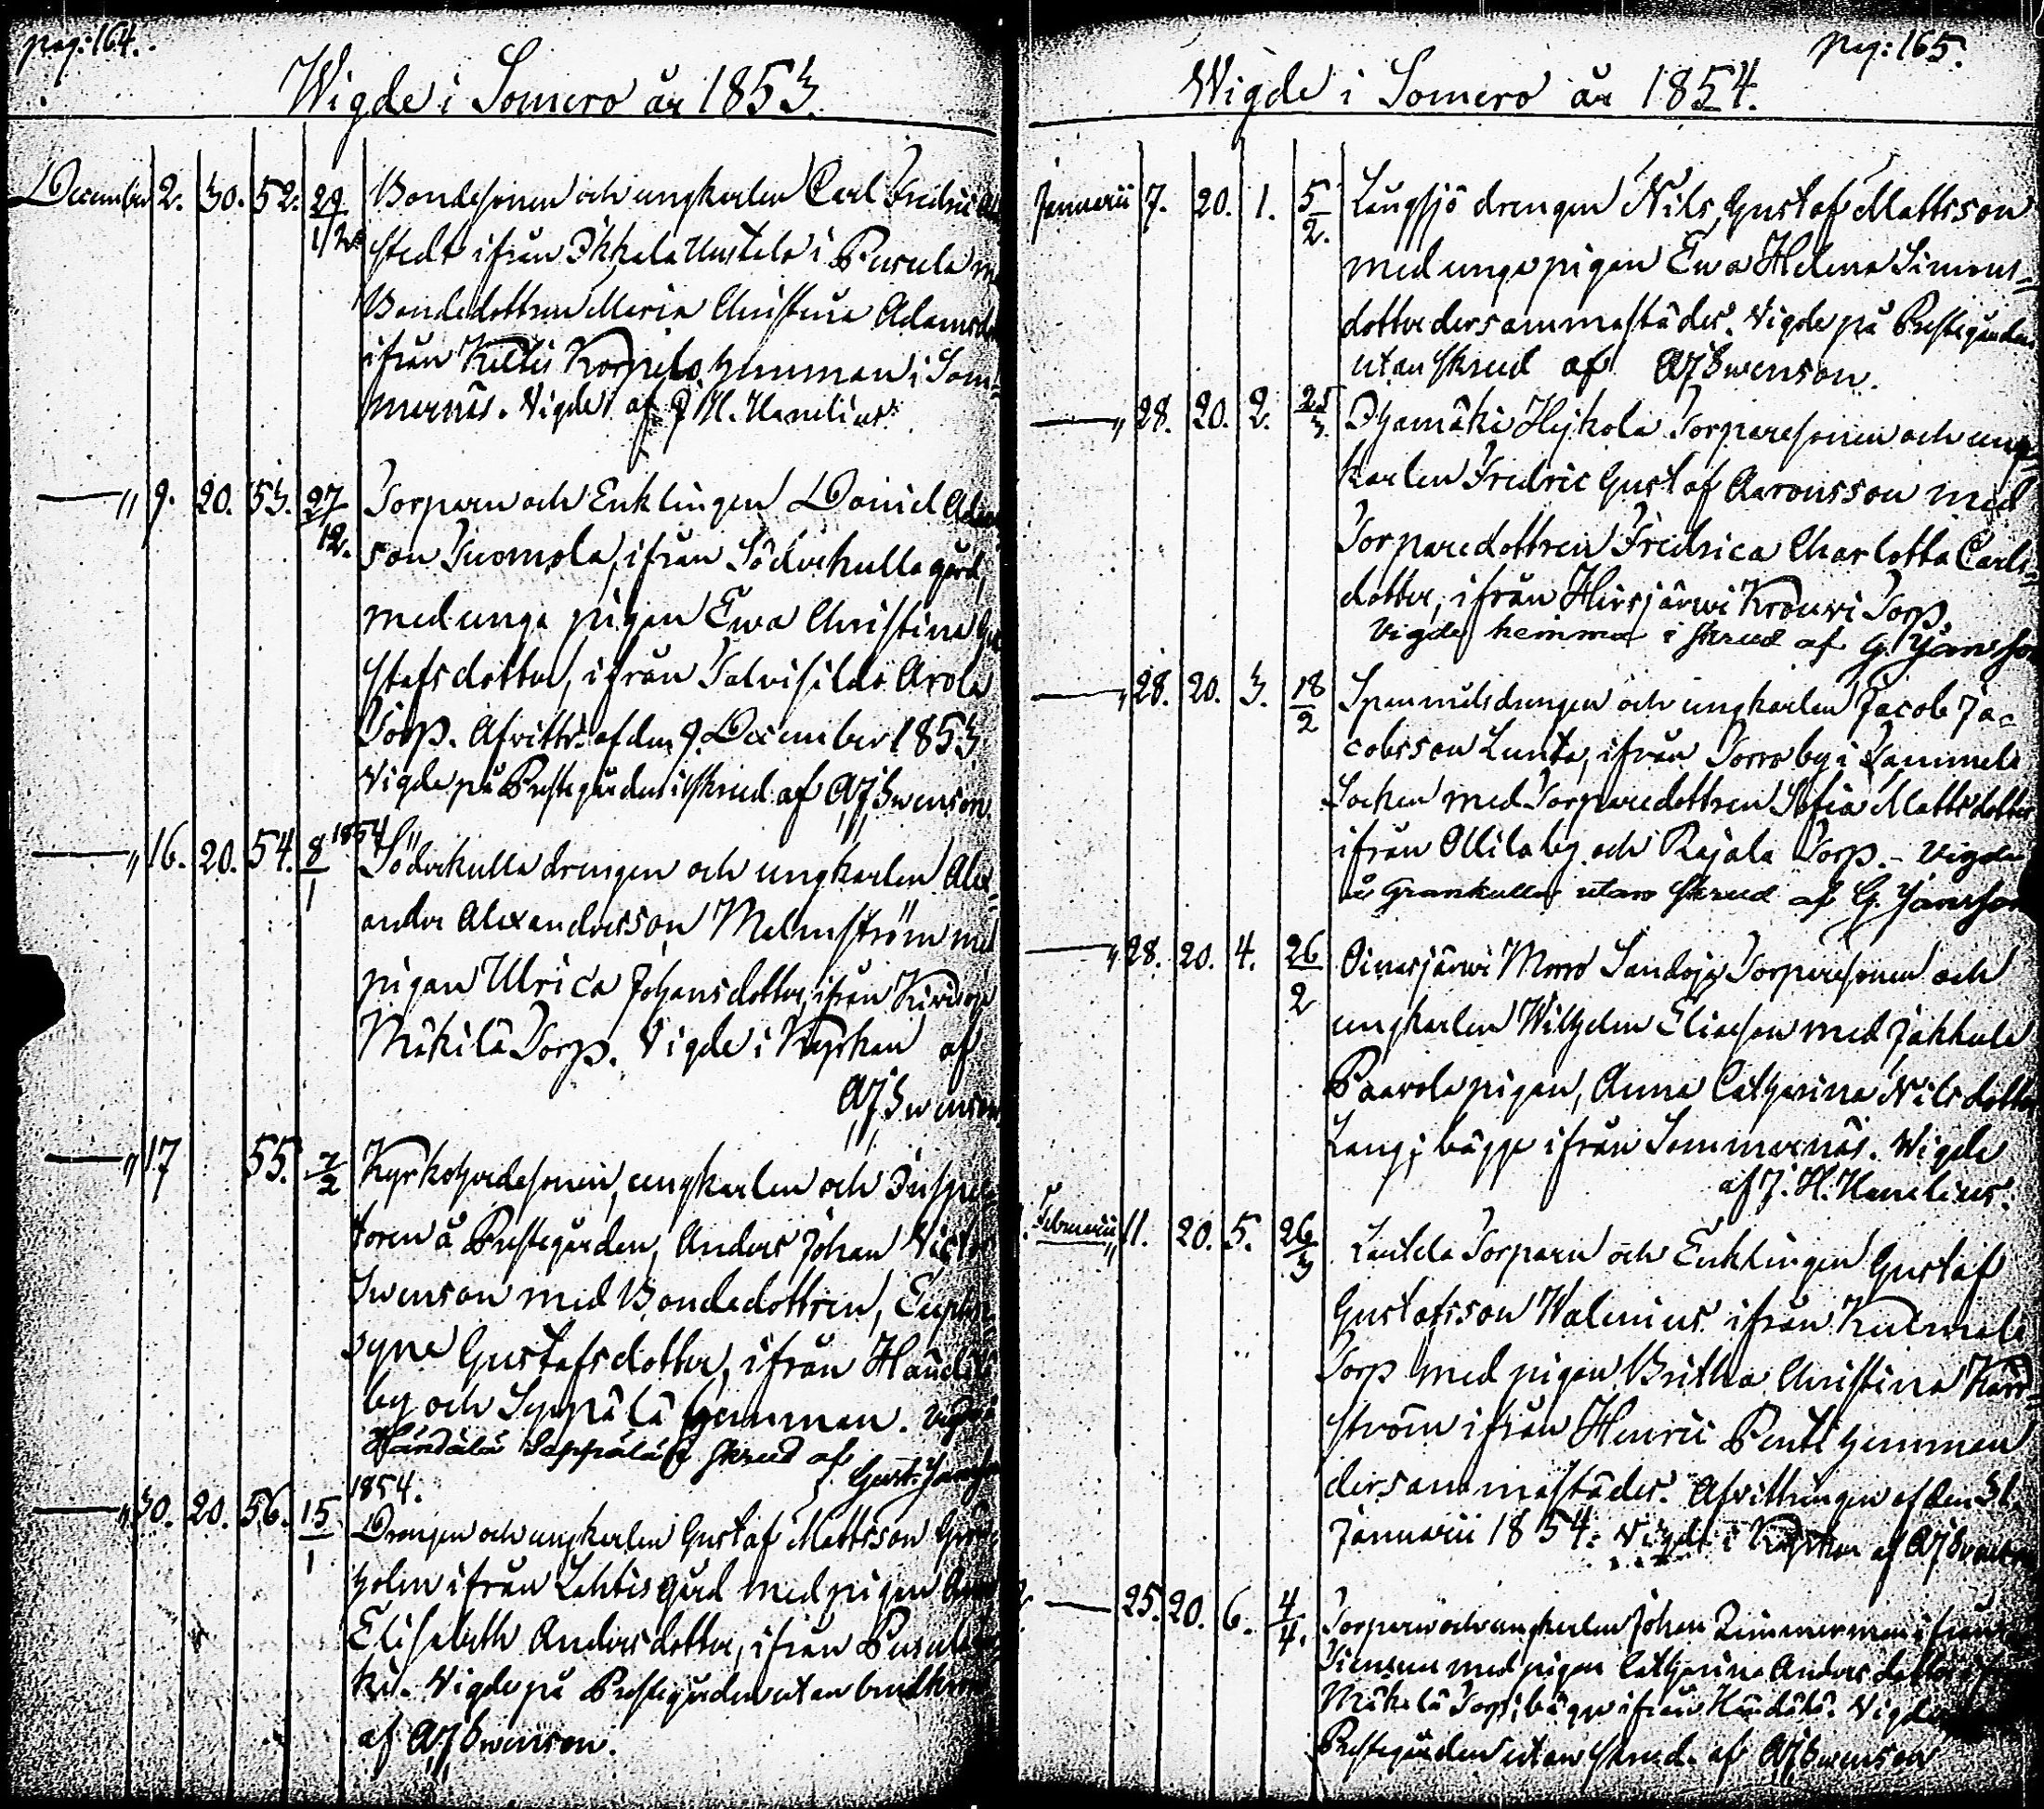 pag: 164.
Wigde i Somero år 1853.
December 2. 30. 52. 29/12 Bondesonen och ungkarlen Carl Fredric
stedt ifrån Ikkala Uustalo i Pusula
Bondedottren Maria Christina Adams
ifrån Kultis Korpela hemman i Som-
mernäs. Vigde af J. H. Hamelius.
—„ 9. 20. 53. 27/12. Torparen och Enklingen Daniel
son Tuomola, ifrån Söderkulla gård,
med unga pigan Ewa Christina
stafsdotter, ifrån Talvisilda Arola
Torp. Afvittr. af den 9. December 1853.
Vigde på Prestegården i skrud af AJSwenson.
—„ 16. 20. 54. 8/1 1854. Söderkulla drengen och ungkarlen Alex-
ander Alexandersson Malmström med
pigan Ulrica Johansdotter, ifrån
Mäkilä Torp. Vigde i Kyrkan af
AJSwenson
—„ 17 55. 7/2 Kyrkoherdesonen, ungkarlen och Inspec
toren å Prestegården, Anders Johan Victor
Swenson med Bondedottren, Euphro
syne Gustafsdotter, ifrån Händälä
by och Seppälä hemman. Vigde i
Händälä Seppälä i skrud af
Gust. Jansson
1854.
—„ 30. 20. 56. 15/1 Drengen och ungkarlen Gustaf Mattsson
holm ifrån Lahtis gård med pigan
Elisabeth Andersdotter, ifrån Pusula
ki. Vigde på Prestegården utan brudkrona
af AJSwenson.
pag: 165.
Wigde i Somero år 1854.
Januarii 7. 20. 1. 5/2. Långsjö drengen Nils Gustaf Mattsson
med unga pigan Ewa Helena Simons-
dotter dersammastädes. Vigde på Prestegården
utan skrud af AJSwenson.
—„ 28. 20. 2. 25/3. Ihamäki Hejkola Torparesonen och ung
karlen Fredric Gustaf Aaronsson med
Torparedottren Fredrica Charlotta Carls-
dotter, ifrån Hirsjärwi Krouvi Torp.
Vigde hemma i skrud af G. Jansson
—„ 28. 20. 3. 18/2 Spanmålsdrengen och ungkarlen Jacob Ja-
cobsson Lunta, ifrån Torro by i Tammela
Socken med Torparedottren Sofia Mattsdotter
ifrån Ollila by och Rajala Torp. – Vigde
å Grankulla utan skrud af G. Jansson
—„ 28. 20. 4. 26/2 Oinasjärwi Torparesonen och
ungkarlen Wilhelm Eliasson med Jakkula
Paavola pigan, Anna Catharina Nilsdotter
Lang; bägge ifrån Sommernäs. Wigde
af J. H. Hamelius.
Februarii „ 11. 20. 5. 26/3 Lautela Torparen och Enklingen Gustaf
Gustafsson Walenius ifrån
Torp med pigan Britha Christina
ström ifrån Henrii Pentti hemman
dersammastädes. Afvittringen af den 31.
Januarii 1854. Vigde i Kyrkan af AJSwenson
— 25. 20. 6. 4/4. Torparen och ungkarlen Johan Zimmerman ifrån
med pigan Catharina Andersdotter
Mäkelä Torp; bägge ifrån Händälä. Vigde
Prestegården utan skrud. af AJSwenson